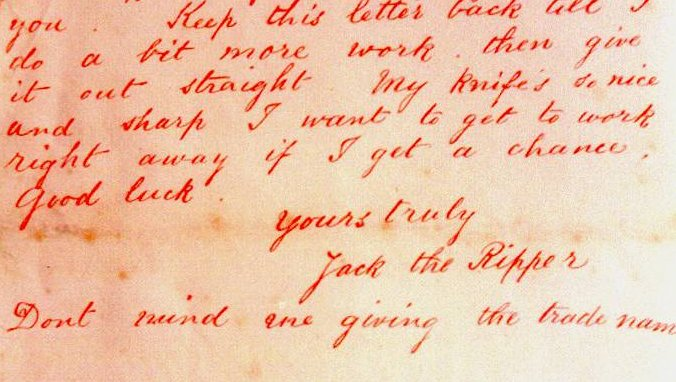 you. Keep this letter back till I
do a bit more work. then give
it out straight My knife's so nice
and sharp I want to get to work
right away if I get a chance.
Good luck.
Yours truly
Jack the Ripper
Dont mind me giving the trade nam